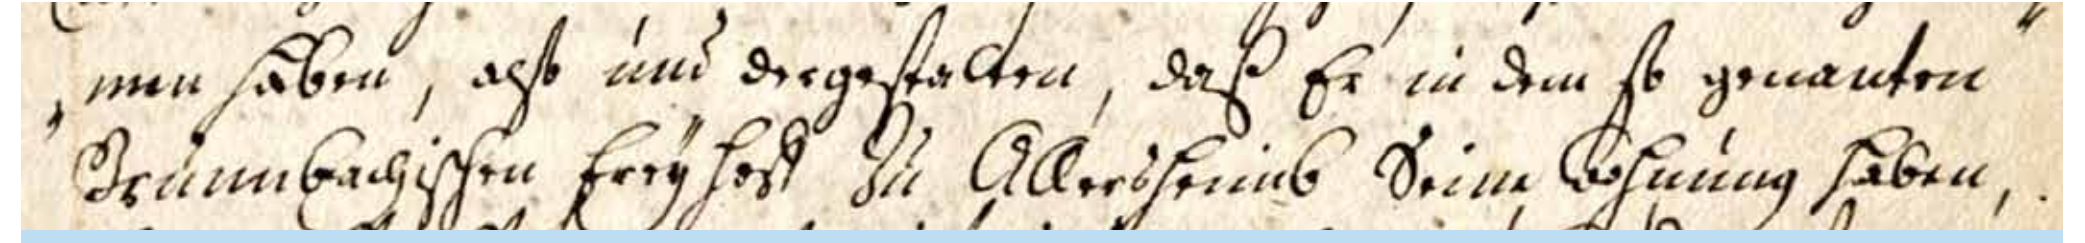 men haben, also und dergestalten, daß Er in dem so genanten
Brumbachischen freyhoff zu Allersheimb Seine wohnung haben,